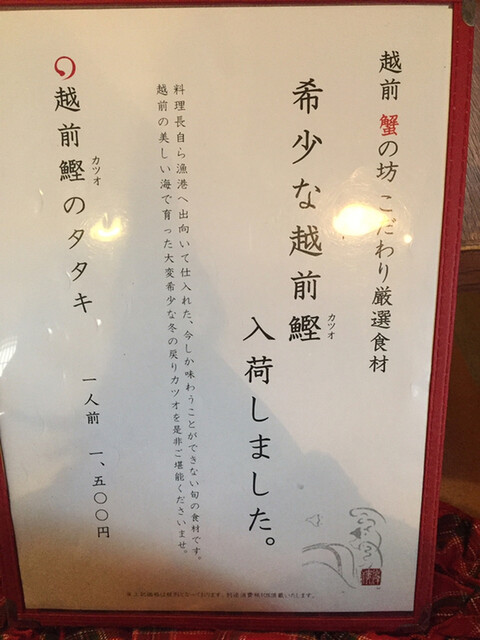 越前 蟹の坊 こだわり厳選食材
希少な越前鰹
カツオ
入荷しました。
料理長自ら漁港へ出向いて仕入れた、今しか味わうことができない旬の食材です。
越前の美しい海で育った大変希少な冬の戻りカツオを是非ご堪能くださいませ。
越前鰹のタタキ
カツオ
一人前 一、五〇〇円